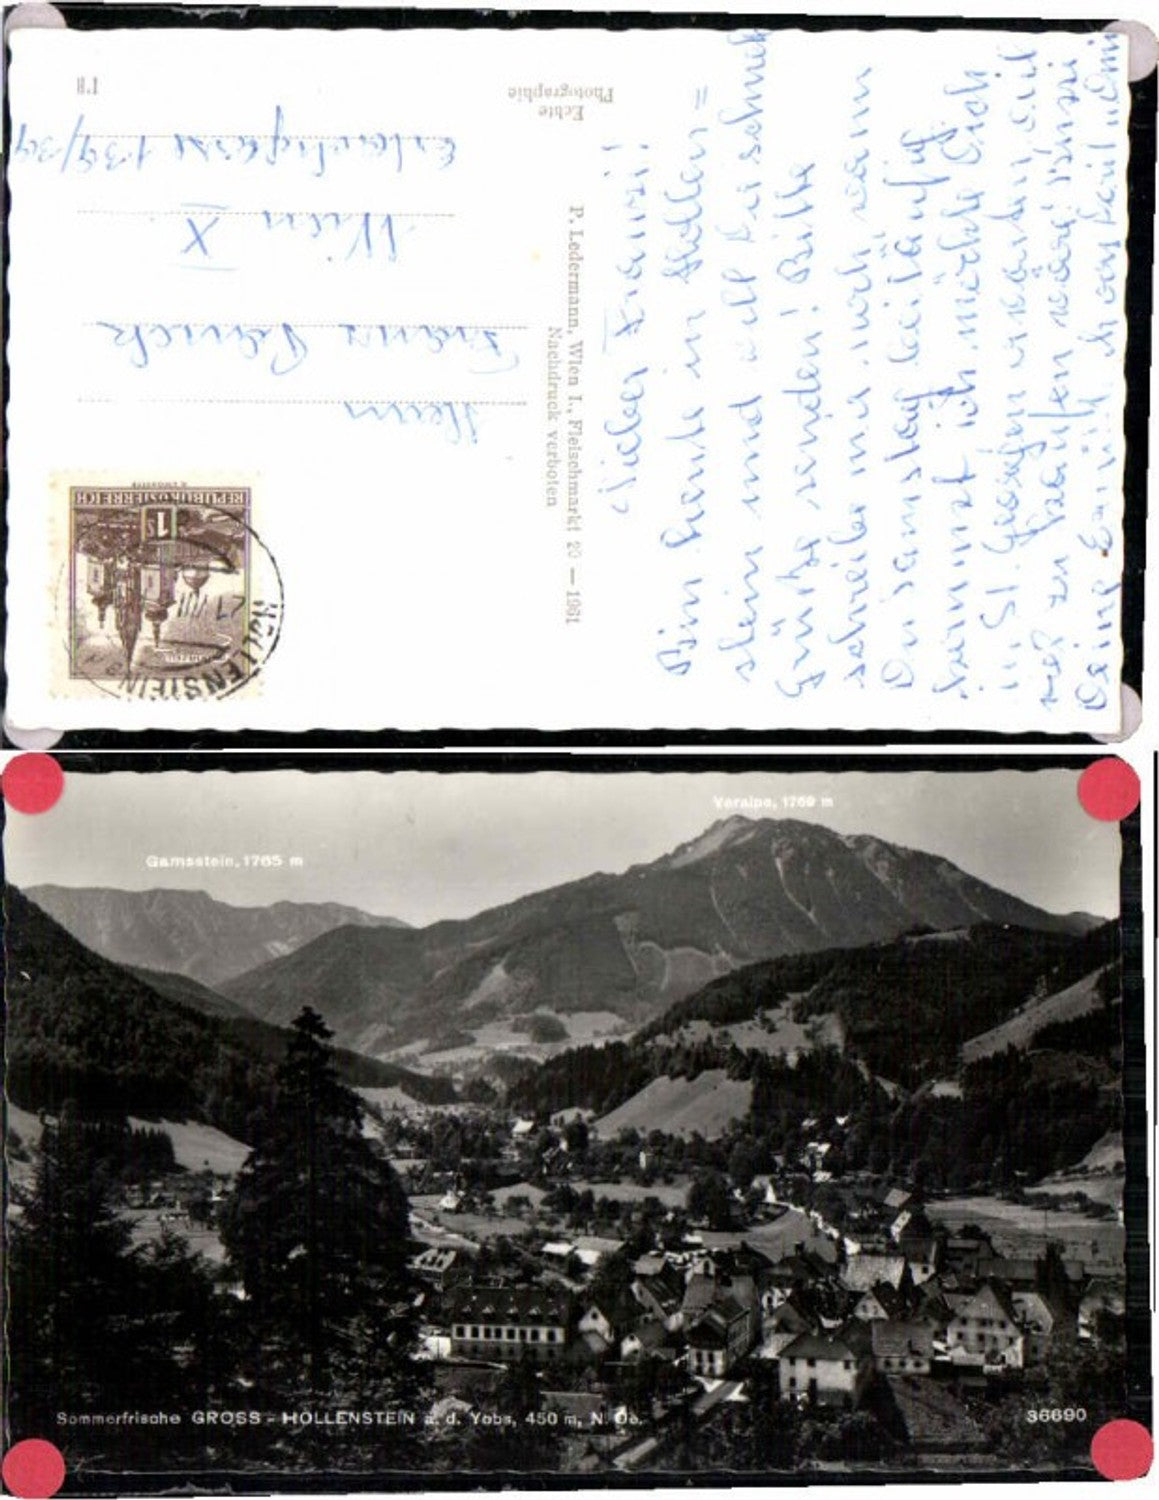 Echte
Photographie
P. Ledermann, Wien I., Fleischmarkt 20 — 1961
Nachdruck verboten
REPUBLIK ÖSTERREICH
1S
HOLLENSTEIN
Herrn
Franz
Wien X
139/39
Lieber Franzi!
Bin heute in Hollen=
stein und will Dir schnell
Grüße senden! Bitte
schreibe mir noch wann
Du Samstag beiläufig
kommst ich möchte Dich
in St. Georgen
zu
Deine
Gamsstein, 1765 m
Voralpe, 1769 m
Sommerfrische GROSS - HOLLENSTEIN a. d. Ybbs, 450 m, N. Oe.
36690